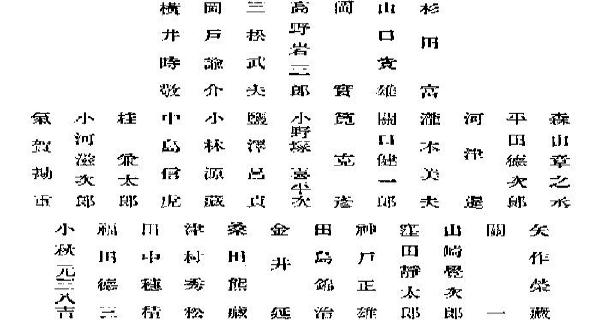 杉田富
山口貴雄
岡實
高野岩三郎
三松武夫
岡戸諭介
横井時敬
森山章之丞
平田德次郎
河津暹
瀧本美夫
關口健一郎
筧克彦
小野塚喜平次
鹽澤昌貞
小林源藏
中島信虎
桂太郎
小河滋次郎
氣賀勘重
矢作榮藏
關一
山崎覺次郎
窪田靜太郎
神戸正雄
田島錦治
金井延
桑田熊藏
津村秀松
田中穗積
福田德三
小秋元三八吉